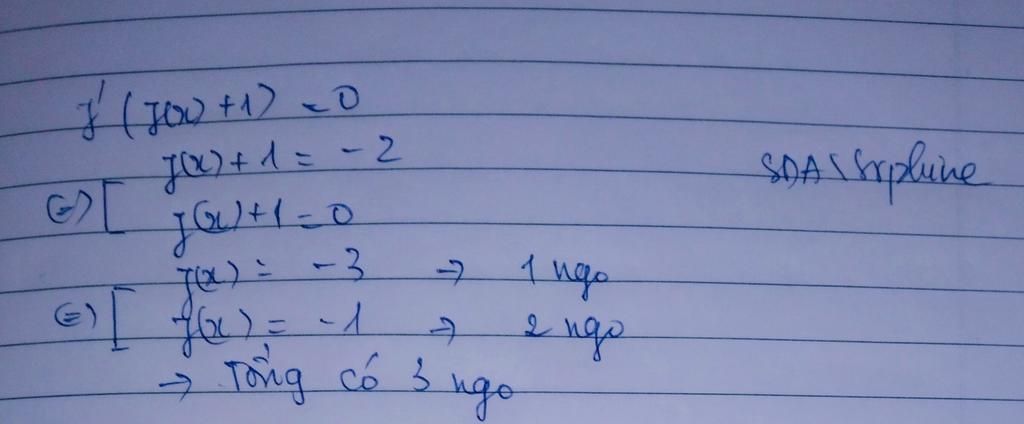 f'(f(x)+1) = 0
f(x)+1 = -2
⇔ [ f(x)+1 = 0
f(x) = -3 → 1 ngo
⇔ [ f(x) = -1 → 2 ngo
→ Tổng có 3 ngo